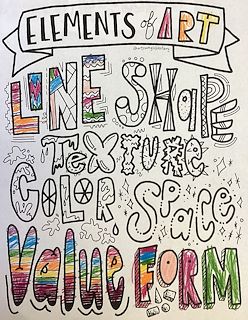 ELEMENTS of ART
LINE SHAPE
TEXTURE
COLOR SPACE
Value FORM